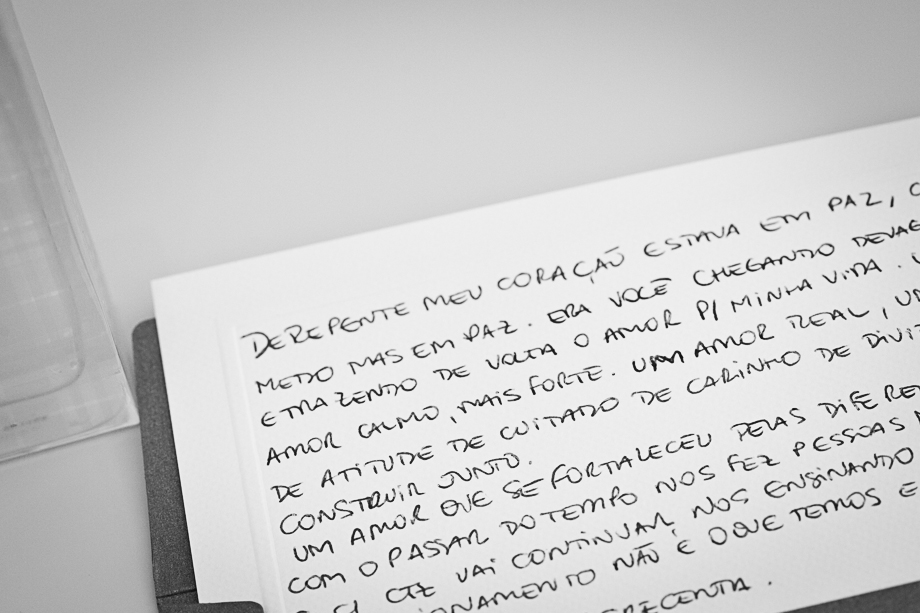 DEREPENTE MEU CORAÇÃO ESTAVA EM PAZ,
MEDO MAS EM PAZ. ERA VOCÊ CHEGANDO
E TRAZENDO DE VOLTA O AMOR P/ MINHA VIDA.
AMOR CALMO, MAIS FORTE. UM AMOR REAL,
DE ATITUDE DE CUIDADO DE CARINHO DE
CONSTRUIR JUNTO.
UM AMOR QUE SE FORTALECEU PELAS
COM O PASSAR DO TEMPO NOS FEZ PESSOAS
CTZ VAI CONTINUAR NOS ENSINANDO
NÃO É O QUE TEMOS E